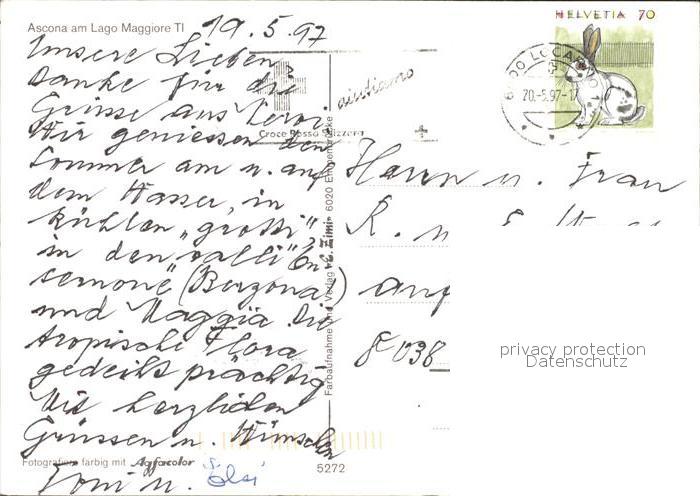 Ascona am Lago Maggiore TI
19.5.97
Unsere Lieben
danke für die
Grüsse aus
Wir geniessen den
Sommer am u. auf
dem Wasser, in
kühlen „grotti",
in den valli On-
sernone (Berzona)
und Maggia. Die
tropische Flora
gedeiht prächtig
Mit herzlichen
Grüssen u. Wünschen
Toni u. Elsi
Fotografiere farbig mit Agfacolor
5272
Farbaufnahme und Verlag 6020 Emmenbrücke
Croce Rossa Svizzera
aiutiamo
HELVETIA 70
6600 LOCARNO 1
20.-5.97-17
Herrn u. Frau
8038
privacy protection
Datenschutz